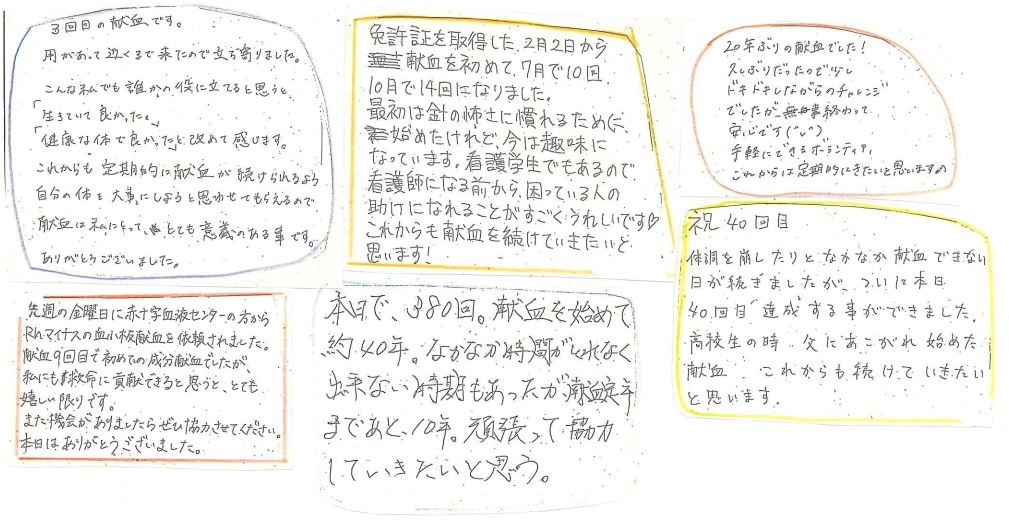 3回目の献血です。
用があって近くまで来たので立ち寄りました。
こんな私でも誰かの役に立てると思うと、
「生きていて良かった」
「健康な体で良かった」と改めて感じます。
これからも定期的に献血が続けられるよう
自分の体を大事にしようと思わせてもらえるので
献血は私にとって、とても意義のある事です。
ありがとうございました。
免許証を取得した、2月2日から
献血を初めて、7月で10回、
10月で14回になりました。
最初は針の怖さに慣れるために、
始めたけれど、今は趣味に
なっています。看護学生でもあるので
看護師になる前から、困っている人の
助けになれることがすごくうれしいです♡
これからも献血を続けていきたいと
思います!
20年ぶりの献血でした!
久しぶりだったので少し
ドキドキしながらのチャレンジ
でしたが、無事終わって
安心です(^◡^)
手軽にできるボランティア、
これからは定期的にきたいと思いますの
先週の金曜日に赤十字血液センターの方から
Rhマイナスの血小板献血を依頼されました。
献血9回目で初めての成分献血でしたが、
私にも救命に貢献できると思うと、とても
嬉しい限りです。
また機会がありましたらぜひ協力させてください。
本日はありがとうございました。
本日で、380回。献血を始めて
約40年。なかなか時間がとれなく
出来ない時期もあったが献血定年
まであと、10年。頑張って協力
していきたいと思う。
祝 40回目
体調を崩したりとなかなか献血できない
日が続きましたが、ついに本日
40回目 達成する事ができました。
高校生の時、父にあこがれ始めた
献血、これからも続けていきたい
と思います。